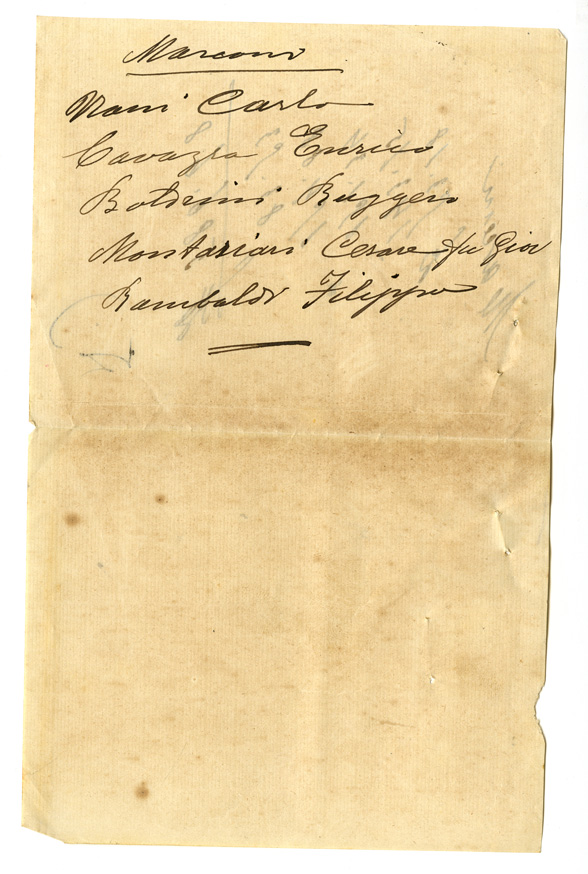 Marconi
Nani Carlo
Cavazza Enrico
Boldrini Ruggero
Montanari Cesare fu Giov
Rambaldi Filippo